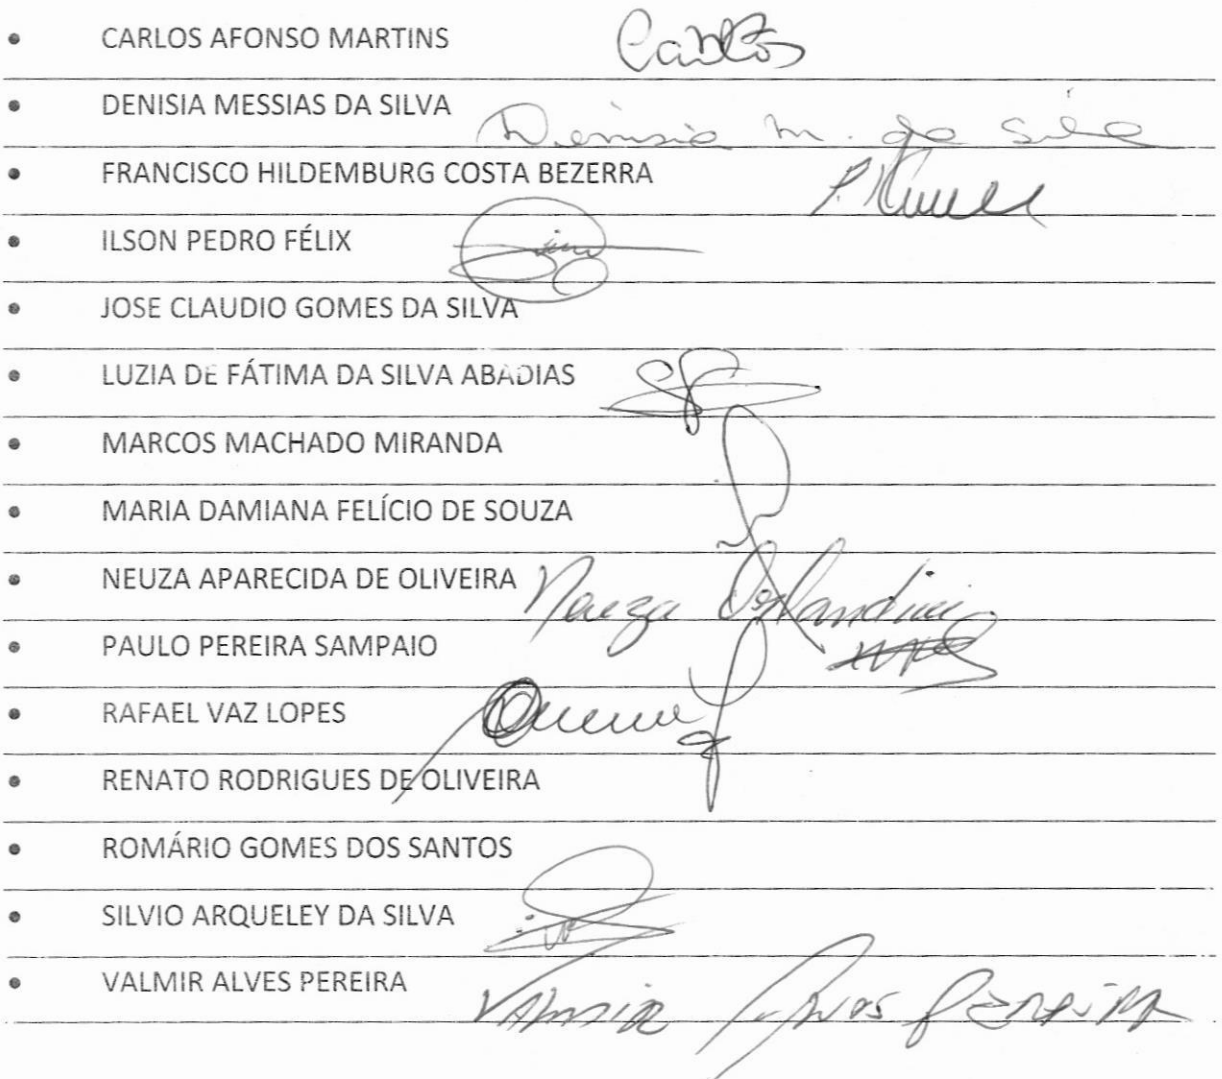 • CARLOS AFONSO MARTINS Carlos
• DENISIA MESSIAS DA SILVA Denisia M. da Silva
• FRANCISCO HILDEMBURG COSTA BEZERRA
• ILSON PEDRO FÉLIX
• JOSE CLAUDIO GOMES DA SILVA
• LUZIA DE FÁTIMA DA SILVA ABADIAS
• MARCOS MACHADO MIRANDA
• MARIA DAMIANA FELÍCIO DE SOUZA
• NEUZA APARECIDA DE OLIVEIRA Neuza
• PAULO PEREIRA SAMPAIO
• RAFAEL VAZ LOPES
• RENATO RODRIGUES DE OLIVEIRA
• ROMÁRIO GOMES DOS SANTOS
• SILVIO ARQUELEY DA SILVA
• VALMIR ALVES PEREIRA VALMIR ALVES PEREIRA